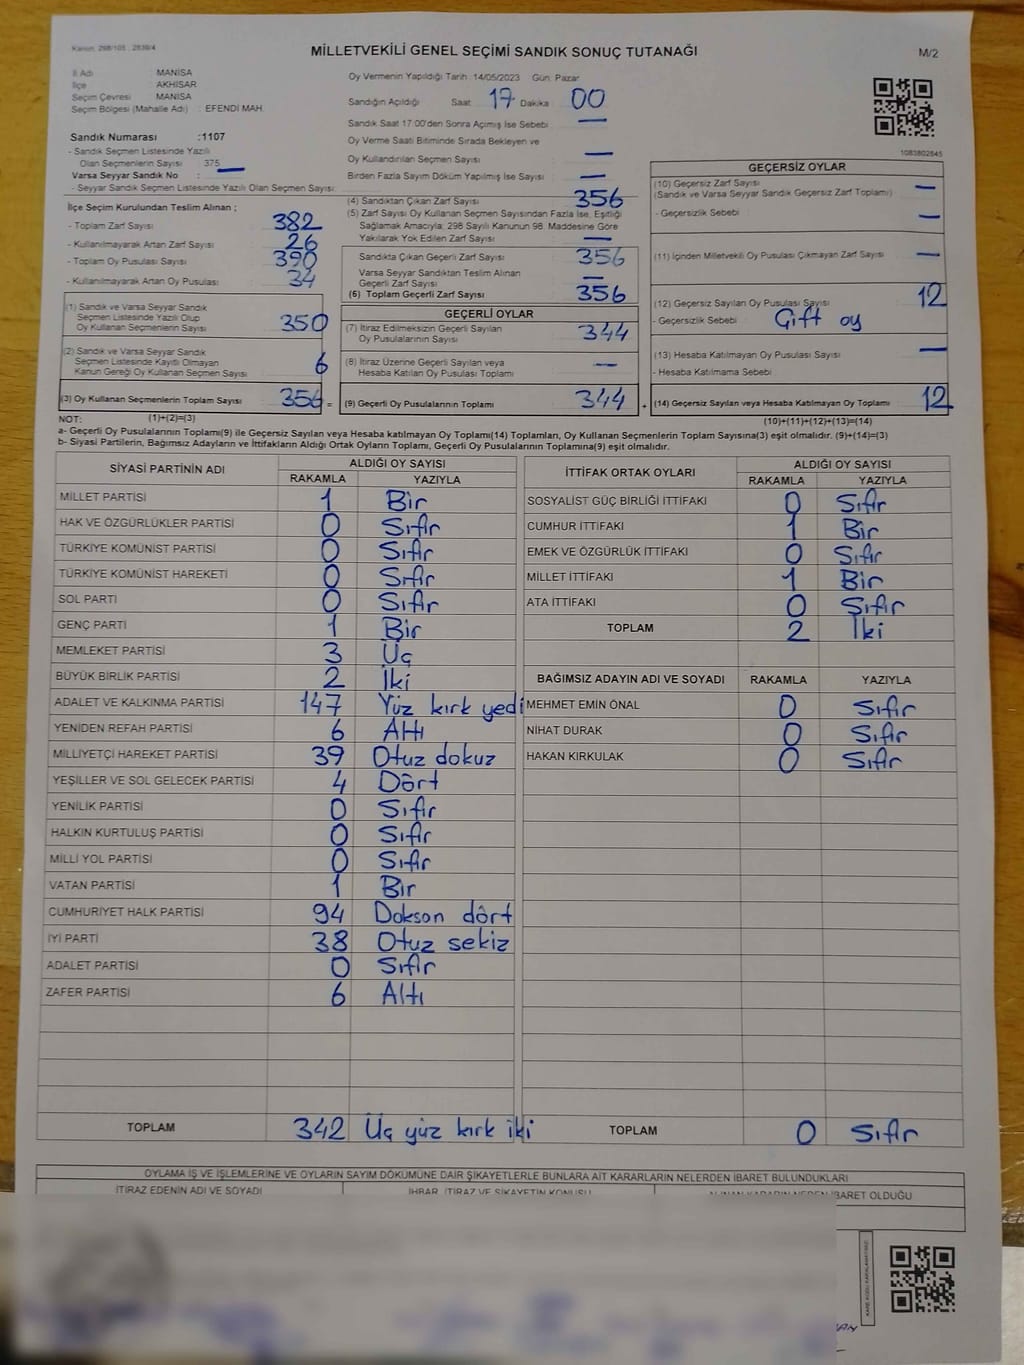 Kanun: 298/105 , 2839/4
MİLLETVEKİLİ GENEL SEÇİMİ SANDIK SONUÇ TUTANAĞI
M/2
İl Adı MANİSA
İlçe AKHİSAR
Seçim Çevresi MANİSA
Seçim Bölgesi (Mahalle Adı) : EFENDİ MAH.
Sandık Numarası :1107
- Sandık Seçmen Listesinde Yazılı
Olan Seçmenlerin Sayısı 375
Varsa Seyyar Sandık No : —
- Seyyar Sandık Seçmen Listesinde Yazılı Olan Seçmen Sayısı:
İlçe Seçim Kurulundan Teslim Alınan ;
- Toplam Zarf Sayısı : 382
- Kullanılmayarak Artan Zarf Sayısı : 26
- Toplam Oy Pusulası Sayısı : 390
- Kullanılmayarak Artan Oy Pusulası : 34
(1) Sandık ve Varsa Seyyar Sandık
Seçmen Listesinde Yazılı Olup
Oy Kullanan Seçmenlerin Sayısı 350
(2) Sandık ve Varsa Seyyar Sandık
Seçmen Listesinde Kayıtlı Olmayan
Kanun Gereği Oy Kullanan Seçmen Sayısı 6
(3) Oy Kullanan Seçmenlerin Toplam Sayısı 356 =
Oy Vermenin Yapıldığı Tarih :14/05/2023 Gün: Pazar
Sandığın Açıldığı Saat 17 Dakika 00
Sandık Saat 17:00'den Sonra Açımış İse Sebebi : —
Oy Verme Saati Bitiminde Sırada Bekleyen ve
Oy Kullandırılan Seçmen Sayısı : —
Birden Fazla Sayım Döküm Yapılmış İse Sayısı : —
(4) Sandıktan Çıkan Zarf Sayısı : 356
(5) Zarf Sayısı Oy Kullanan Seçmen Sayısından Fazla İse, Eşitliği
Sağlamak Amacıyla; 298 Sayılı Kanunun 98. Maddesine Göre
Yakılarak Yok Edilen Zarf Sayısı : —
Sandıkta Çıkan Geçerli Zarf Sayısı : 356
Varsa Seyyar Sandıktan Teslim Alınan
Geçerli Zarf Sayısı : —
(6) Toplam Geçerli Zarf Sayısı : 356
GEÇERLİ OYLAR
(7) İtiraz Edilmeksizin Geçerli Sayılan
Oy Pusulalarının Sayısı : 344
(8) İtiraz Üzerine Geçerli Sayılan veya
Hesaba Katılan Oy Pusulası Toplamı : —
(9) Geçerli Oy Pusulalarının Toplamı : 344 +
1083802645
GEÇERSİZ OYLAR
(10) Geçersiz Zarf Sayısı : —
(Sandık ve Varsa Seyyar Sandık Geçersiz Zarf Toplamı)
- Geçersizlik Sebebi : —
(11) İçinden Milletvekili Oy Pusulası Çıkmayan Zarf Sayısı : —
(12) Geçersiz Sayılan Oy Pusulası Sayısı : 12
- Geçersizlik Sebebi : Çift oy
(13) Hesaba Katılmayan Oy Pusulası Sayısı : —
- Hesaba Katılmama Sebebi :
(14) Geçersiz Sayılan veya Hesaba Katılmayan Oy Toplamı : 12
NOT: (1)+(2)=(3) (10)+(11)+(12)+(13)=(14)
a- Geçerli Oy Pusulalarının Toplamı(9) ile Geçersiz Sayılan veya Hesaba katılmayan Oy Toplamı(14) Toplamları, Oy Kullanan Seçmenlerin Toplam Sayısına(3) eşit olmalıdır. (9)+(14)=(3)
b- Siyasi Partilerin, Bağımsız Adayların ve İttifakların Aldığı Ortak Oyların Toplamı, Geçerli Oy Pusulalarının Toplamına(9) eşit olmalıdır.
SİYASİ PARTİNİN ADI ALDIĞI OY SAYISI
RAKAMLA YAZIYLA
MİLLET PARTİSİ 1 Bir
HAK VE ÖZGÜRLÜKLER PARTİSİ 0 Sıfır
TÜRKİYE KOMÜNİST PARTİSİ 0 Sıfır
TÜRKİYE KOMÜNİST HAREKETİ 0 Sıfır
SOL PARTİ 0 Sıfır
GENÇ PARTİ 1 Bir
MEMLEKET PARTİSİ 3 Üç
BÜYÜK BİRLİK PARTİSİ 2 İki
ADALET VE KALKINMA PARTİSİ 147 Yüz kırk yedi
YENİDEN REFAH PARTİSİ 6 Altı
MİLLİYETÇİ HAREKET PARTİSİ 39 Otuz dokuz
YEŞİLLER VE SOL GELECEK PARTİSİ 4 Dört
YENİLİK PARTİSİ 0 Sıfır
HALKIN KURTULUŞ PARTİSİ 0 Sıfır
MİLLİ YOL PARTİSİ 0 Sıfır
VATAN PARTİSİ 1 Bir
CUMHURİYET HALK PARTİSİ 94 Dokson dört
İYİ PARTİ 38 Otuz sekiz
ADALET PARTİSİ 0 Sıfır
ZAFER PARTİSİ 6 Altı
TOPLAM 342 Üç yüz kırk iki
İTTİFAK ORTAK OYLARI ALDIĞI OY SAYISI
RAKAMLA YAZIYLA
SOSYALİST GÜÇ BİRLİĞİ İTTİFAKI 0 Sıfır
CUMHUR İTTİFAKI 1 Bir
EMEK VE ÖZGÜRLÜK İTTİFAKI 0 Sıfır
MİLLET İTTİFAKI 1 Bir
ATA İTTİFAKI 0 Sıfır
TOPLAM 2 İki
BAĞIMSIZ ADAYIN ADI VE SOYADI RAKAMLA YAZIYLA
MEHMET EMİN ÖNAL 0 Sıfır
NİHAT DURAK 0 Sıfır
HAKAN KIRKULAK 0 Sıfır
TOPLAM 0 Sıfır
OYLAMA İŞ VE İŞLEMLERİNE VE OYLARIN SAYIM DÖKÜMÜNE DAİR ŞİKAYETLERLE BUNLARA AİT KARARLARIN NELERDEN İBARET BULUNDUKLARI
İTİRAZ EDENİN ADI VE SOYADI İHBAR, İTİRAZ VE ŞİKAYETİN KONUSU ALINAN KARARIN NEDEN İBARET OLDUĞU